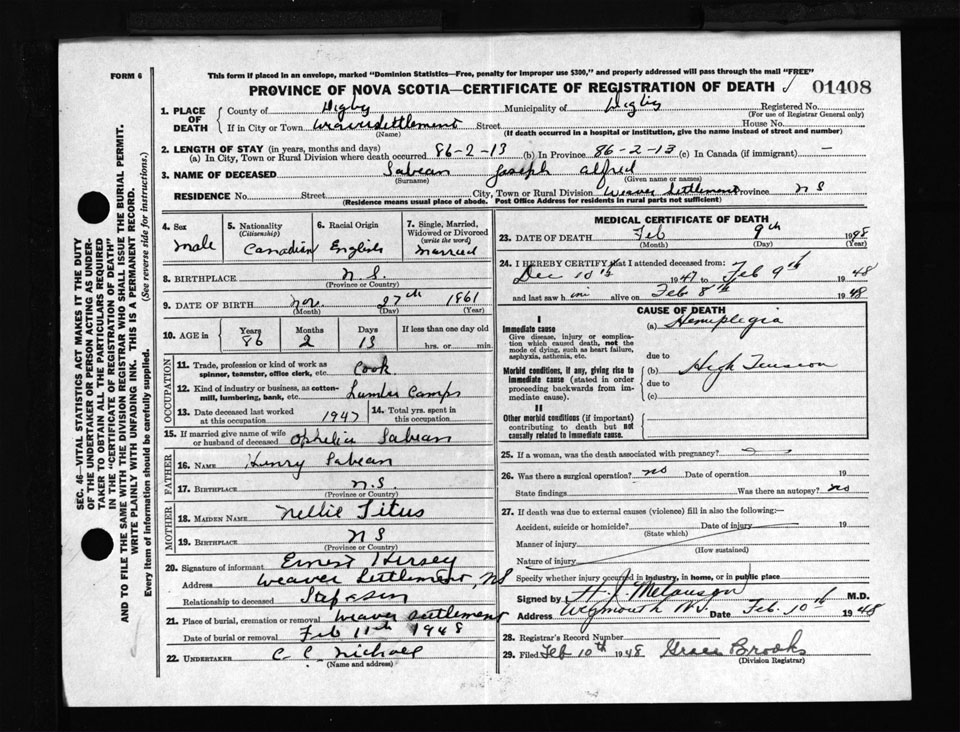 FORM 6
This form if placed in an envelope, marked "Dominion Statistics—Free, penalty for improper use $300," and properly addressed will pass through the mail "FREE"
PROVINCE OF NOVA SCOTIA—CERTIFICATE OF REGISTRATION OF DEATH
01408
1. PLACE OF DEATH
County of Digby Municipality of Digby Registered No.
(For use of Registrar General only)
If in City or Town Weaver Settlement Street House No.
(Name) (If death occurred in a hospital or institution, give the name instead of street and number)
2. LENGTH OF STAY (in years, months and days)
(a) In City, Town or Rural Division where death occurred 86-2-13 (b) In Province 86-2-13 (c) In Canada (if immigrant) —
3. NAME OF DECEASED Sabean Joseph Alfred
(Surname) (Given name or names)
RESIDENCE No. Street City, Town or Rural Division Weaver Settlement Province N S
(Residence means usual place of abode. Post Office Address for residents in rural parts not sufficient)
4. Sex
Male
5. Nationality
(Citizenship)
Canadian
6. Racial Origin
English
7. Single, Married, Widowed or Divorced
(write the word)
Married
8. BIRTHPLACE N.S.
(Province or Country)
9. DATE OF BIRTH Nov. 27th 1861
(Month) (Day) (Year)
10. AGE in Years Months Days If less than one day old
86 2 13 hrs. or min.
OCCUPATION
11. Trade, profession or kind of work as spinner, teamster, office clerk, etc. Cook
12. Kind of industry or business, as cotton-mill, lumbering, bank, etc. Lumber Camps
13. Date deceased last worked at this occupation 1947
14. Total yrs. spent in this occupation
15. If married give name of wife or husband of deceased Ophelia Sabean
FATHER
16. NAME Henry Sabean
17. BIRTHPLACE N.S.
(Province or Country)
MOTHER
18. MAIDEN NAME Nellie Titus
19. BIRTHPLACE N S
(Province or Country)
20. Signature of informant Ernest Hersey
Address Weaver Settlement, NS
Relationship to deceased Stepson
21. Place of burial, cremation or removal Weaver Settlement
Date of burial or removal Feb 11th 1948
22. UNDERTAKER C. C. Nichols
(Name and address)
MEDICAL CERTIFICATE OF DEATH
23. DATE OF DEATH Feb 9th 1948
(Month) (Day) (Year)
24. I HEREBY CERTIFY that I attended deceased from:
Dec 10th 1947 to Feb 9th 1948
and last saw him alive on Feb 8th 1948
CAUSE OF DEATH
I
Immediate cause
Give disease, injury or complication which caused death, not the mode of dying, such as heart failure, asphyxia, asthenia, etc.
(a) Hemiplegia
due to
Morbid conditions, if any, giving rise to immediate cause (stated in order proceeding backwards from immediate cause).
(b) High Tension
due to
(c)
II
Other morbid conditions (if important) contributing to death but not causally related to immediate cause.
25. If a woman, was the death associated with pregnancy?
26. Was there a surgical operation? no Date of operation 19
State findings Was there an autopsy? no
27. If death was due to external causes (violence) fill in also the following:—
Accident, suicide or homicide? Date of injury 19
(State which)
Manner of injury
(How sustained)
Nature of injury
Specify whether injury occurred in industry, in home, or in public place
Signed by H. J. Melanson M.D.
Address Weymouth N.S. Feb. 10th 1948
28. Registrar's Record Number
29. Filed Feb 10th 1948 Grace Brooks
(Division Registrar)
SEC. 46—VITAL STATISTICS ACT MAKES IT THE DUTY
OF THE UNDERTAKER OR PERSON ACTING AS UNDERTAKER TO OBTAIN ALL THE PARTICULARS REQUIRED
IN THE "CERTIFICATE OF REGISTRATION OF DEATH"
AND TO FILE THE SAME WITH THE DIVISION REGISTRAR WHO SHALL ISSUE THE BURIAL PERMIT.
WRITE PLAINLY WITH UNFADING INK. THIS IS A PERMANENT RECORD.
Every item of information should be carefully supplied. (See reverse side for instructions.)